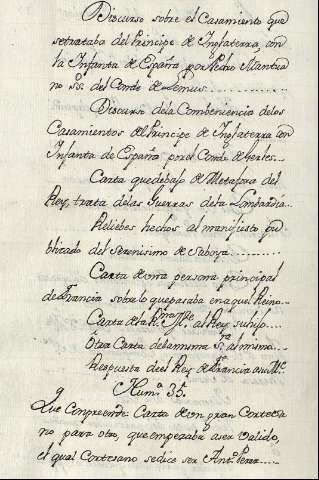 Discurso sobre el Casamiento que
setrataba del Principe de Inglaterra, con
la Infanta de España, por Pedro Mantua
no S.º del Conde de Lemus
Discurso dela Combeniencia delos
Casamientos del Principe de Inglaterra con
Infanta de España por el Conde de
Carta que debajo de Metafora del
Rey, trata de las Guerras dela Lombardia
Reliebes hechos al manifiesto pu
blicado del Serenisimo de Saboya
Carta de una persona principal
de Francia sobre lo que pasaba en aquel Reino
Carta dela R.na M.e al Rey su hijo
Otra Carta dela misma S.ra al mismo
Respuesta del Rey de Francia a su M.e
Num.º 35.
Que Comprende Carta de un gran Cortesa
no para otro, que empezaba a ser Valido,
el qual Cortesano se dice ser Ant.º Perez